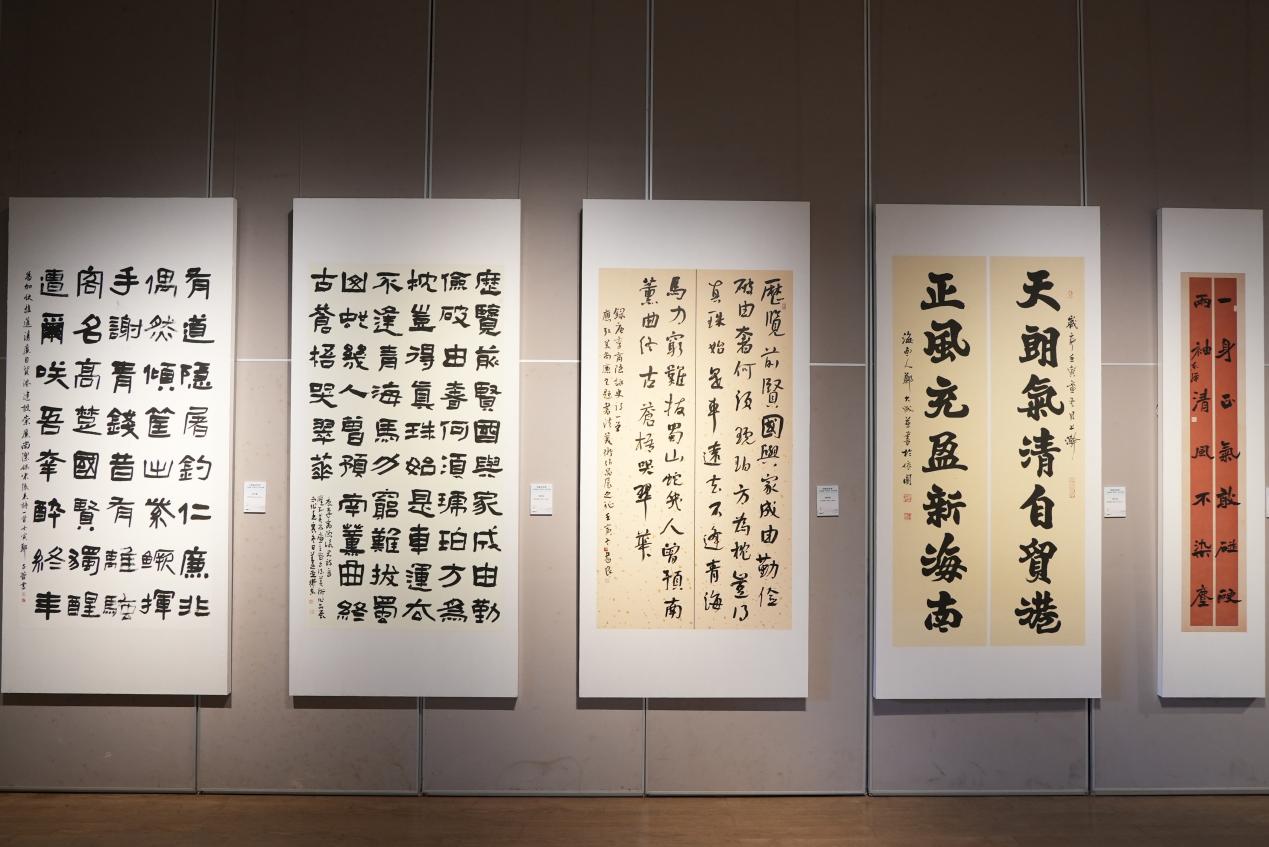 有道隱屠釣仁廉非
偶然傾筐出紫鱖揮
手謝青錢昔有離騷
客名高楚國賢獨醒
遭爾咲吾幸醉終年
歷覽前賢國與家成由勤
儉破由奢何須琥珀方為
枕豈得真珠始是車運去
不逢青海馬力窮難拔蜀
山蛇幾人曾預南薰曲終
古蒼梧哭翠華
歷覽前賢國與家成由勤儉
破由奢何須琥珀方為枕豈得
真珠始是車遠去不逢青海
馬力窮難拔蜀山蛇幾人曾預南
薰曲終古蒼梧哭翠華
錄唐李商隱詠史詩一首
天朗氣清自貿港
正風充盈新海南
一身正氣敢碰硬
兩袖清風不染塵